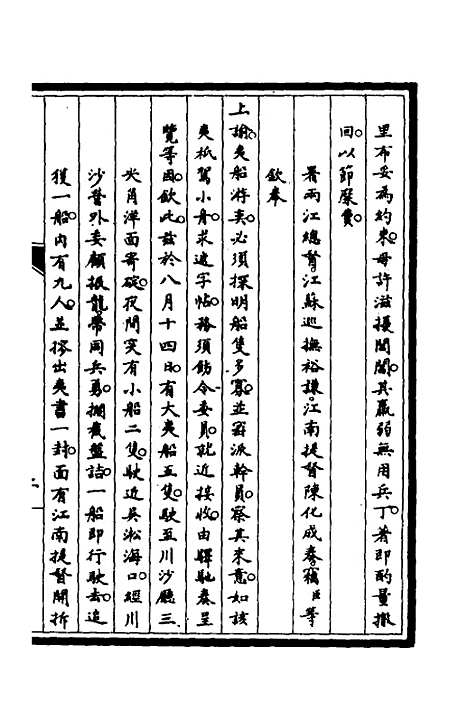 里布妥為約束毋許滋擾閭閻其羸弱無用兵丁著即酌量撤
回以節糜費
署兩江總督江蘇巡撫裕謙江南提督陳化成奏竊臣等
欽奉
上諭夷船游奕必須探明船隻多寡並密派幹員察其來意如該
夷祇駕小舟求遞字帖務須飭令委員就近接收由驛馳奏呈
覽等因欽此茲於八月十四日有大夷船五隻駛至川沙廳三
尖角洋面寄碇夜間突有小船二隻駛近吳淞海口經川
沙營外委顧振龍帶同兵勇攔截盤詰一船即行駛去追
獲一船內有九人並撈出夷書一封面有江南提督開拆